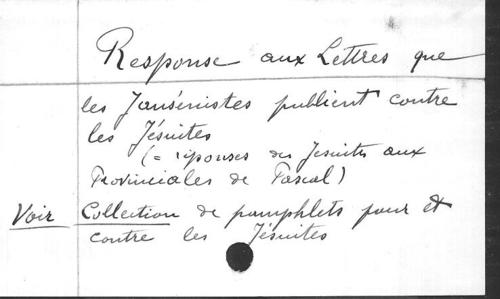 Response aux Lettres que
les Jansénistes publient contre
les Jésuites
(= réponses des Jesuites aux
Provinciales de Pascal)
Voir Collection de pamphlets pour et
contre les Jésuites